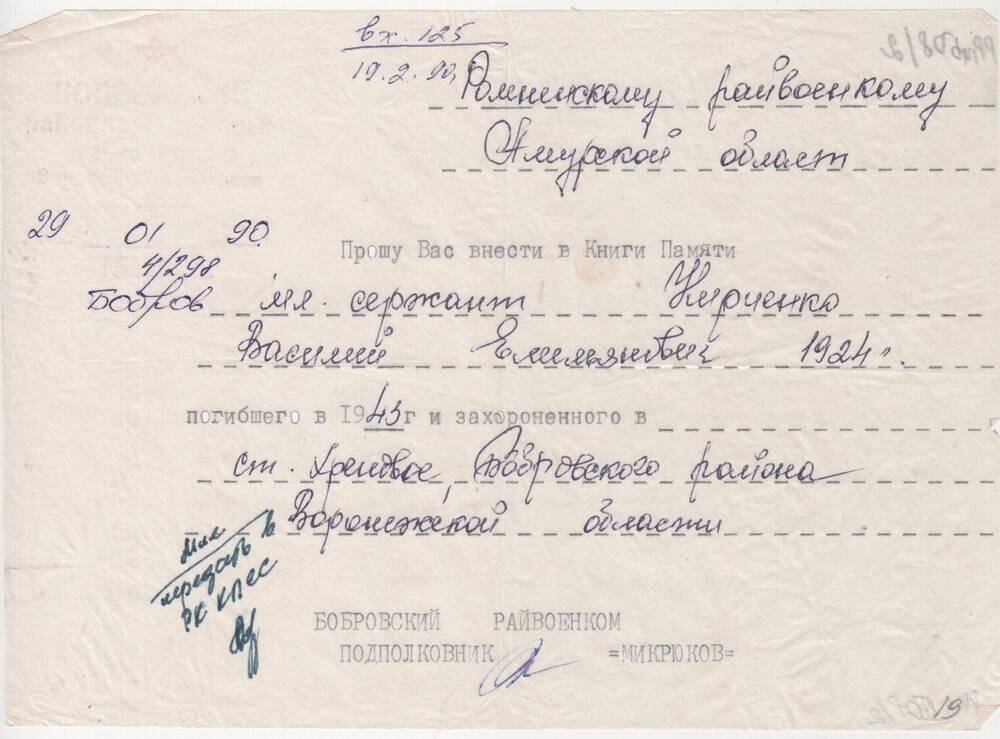 вх. 125
19.2.90.
Ромненскому райвоенкому
Амурской област
29 01 90.
4/298
Бобров
Прошу Вас внести в Книги Памяти
мл. сержант
Василий Емильянович 1924г.
погибшего в 1943г и захороненного в
ст. Хреновое, Бобровского района
Воронежской области
передать в
РК КПСС
БОБРОВСКИЙ РАЙВОЕНКОМ
ПОДПОЛКОВНИК =МИКРЮКОВ=
19